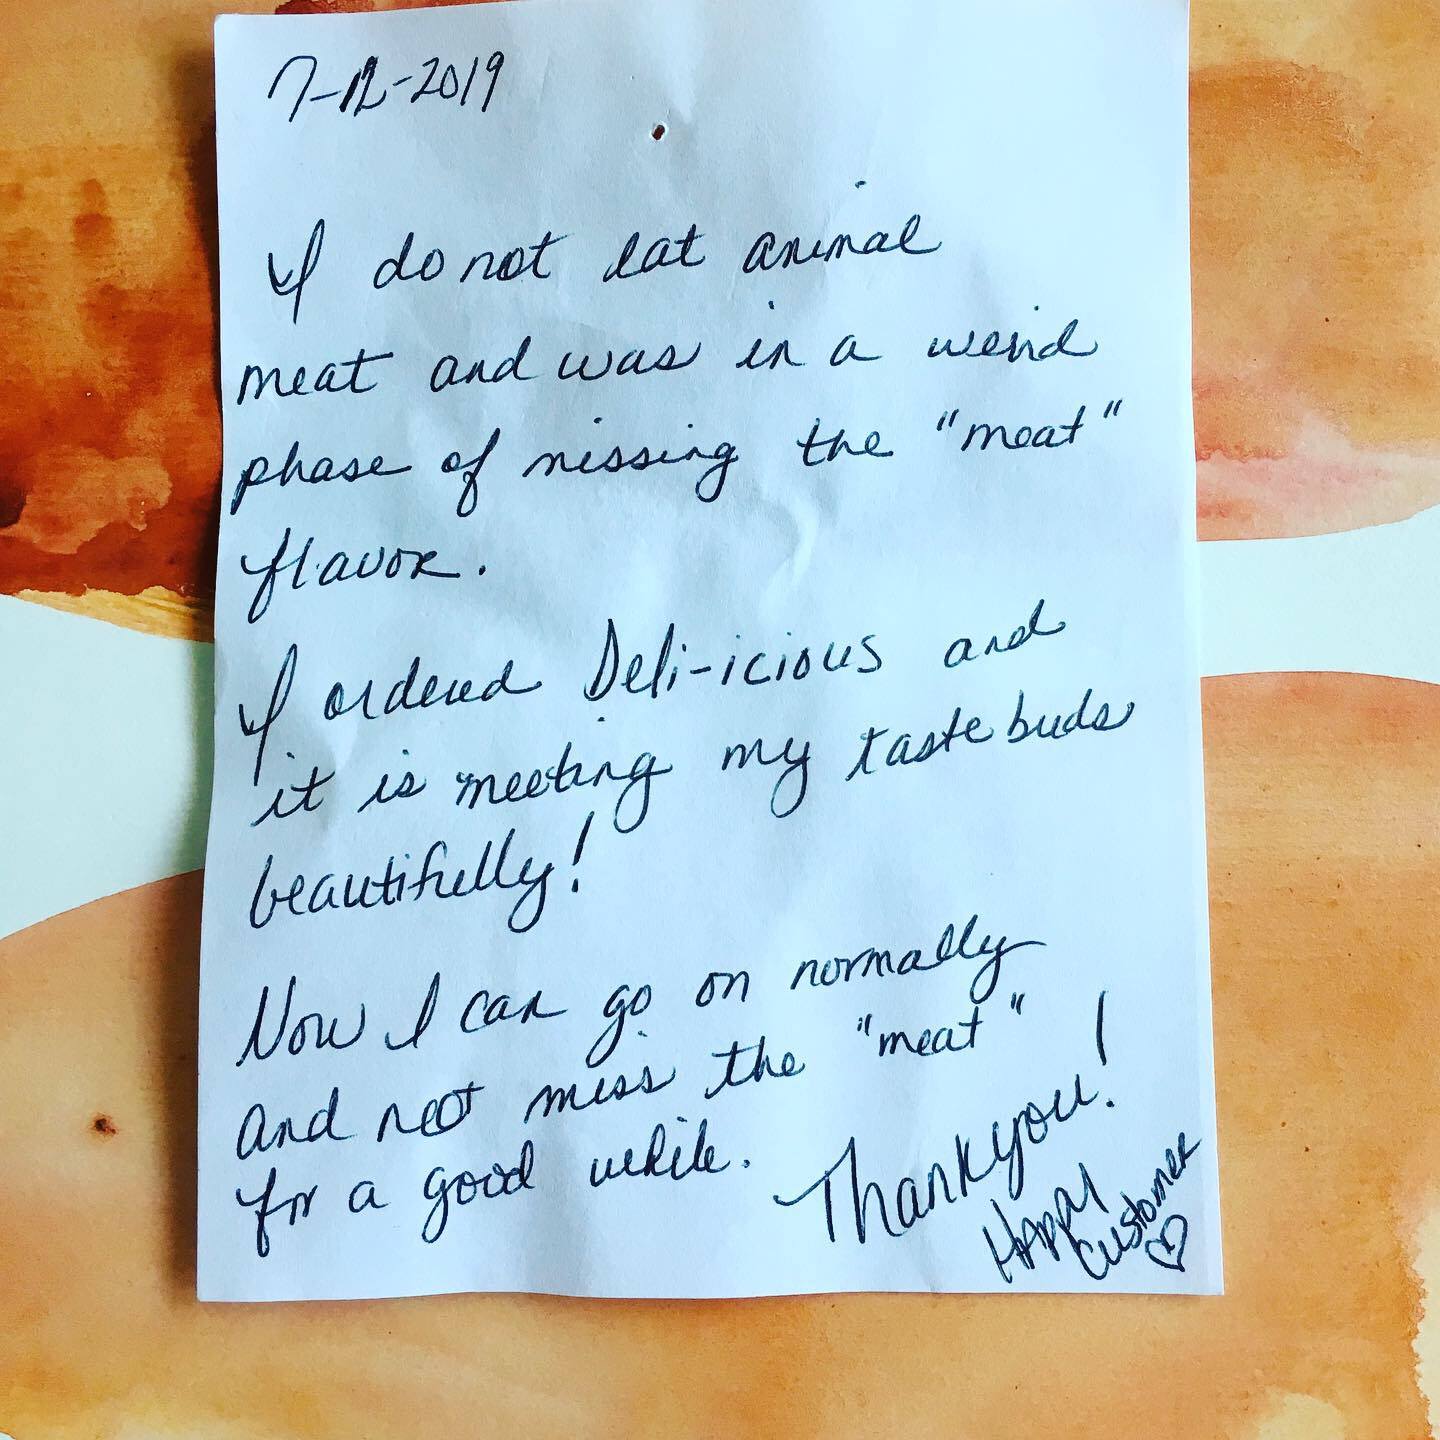 7-12-2019
I do not eat animal
meat and was in a weird
phase of missing the "meat"
flavor.
I ordered Deli-icious and
it is meeting my taste buds
beautifully!
Now I can go on normally
and not miss the "meat"
for a good while.
Thank you!
Happy
Customer